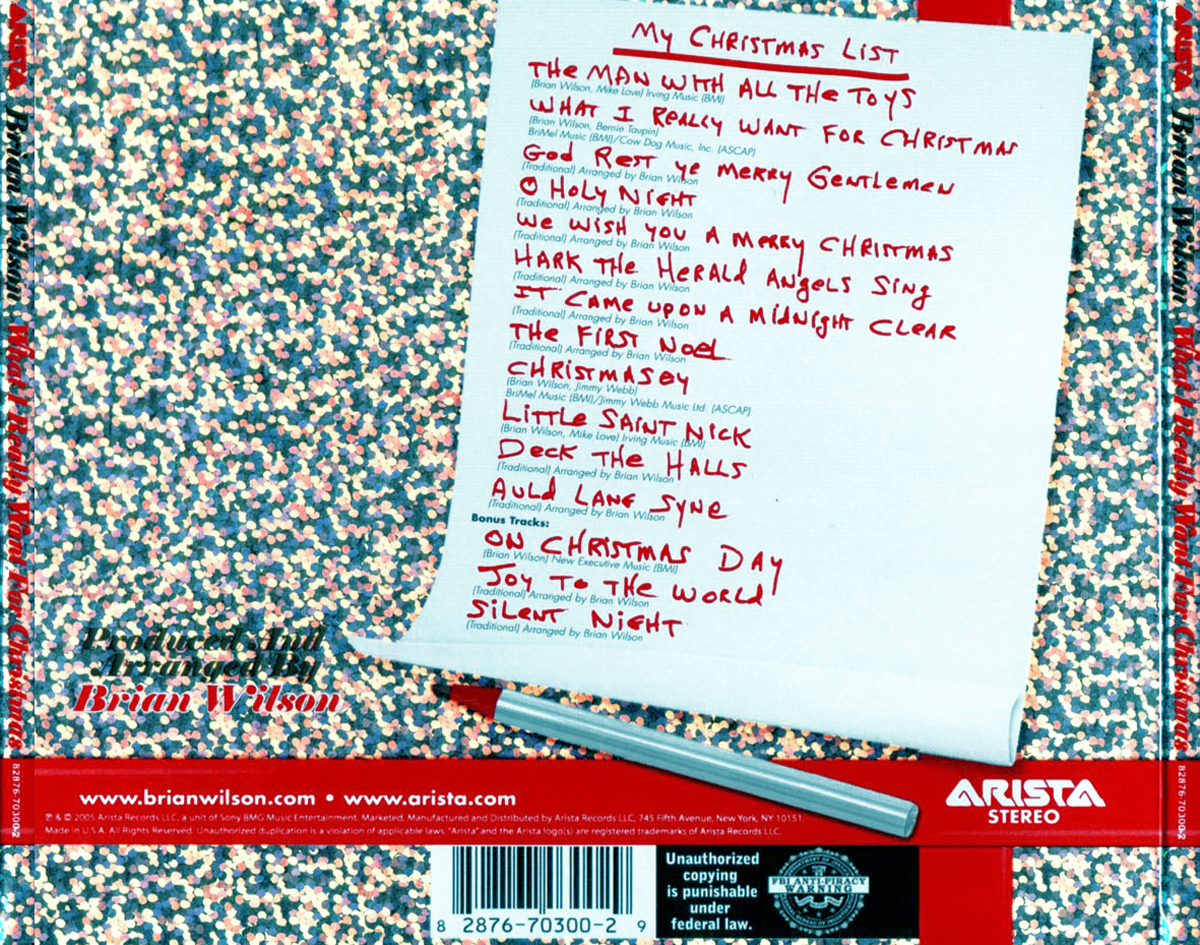 My CHRISTMAS LIST
THe MAN WITH ALL THe TOYS
(Brian Wilson, Mike Love) Irving Music (BMI)
WHAT I ReALLy WANT FOR CHRISTMAS
(Brian Wilson, Bernie Taupin)
BriMel Music (BMI)/Cow Dog Music, Inc. (ASCAP)
God ReST ye MeRRy GeNTLeMeN
(Traditional) Arranged by Brian Wilson
O HOLy NIGHT
(Traditional) Arranged by Brian Wilson
We WISH yOU A MeRRy CHRISTMAS
(Traditional) Arranged by Brian Wilson
HARK THe HeRALd ANgeLS SiNg
(Traditional) Arranged by Brian Wilson
IT CAMe UPON A MIdNIgHT CLeAR
(Traditional) Arranged by Brian Wilson
THe FIRST NOeL
(Traditional) Arranged by Brian Wilson
CHRISTMASey
(Brian Wilson, Jimmy Webb)
BriMel Music (BMI)/Jimmy Webb Music Ltd. (ASCAP)
LITTLe SAINT NICK
(Brian Wilson, Mike Love) Irving Music (BMI)
DeCK THe HALLS
(Traditional) Arranged by Brian Wilson
AULd LANG SyNe
(Traditional) Arranged by Brian Wilson
Bonus Tracks:
ON CHRISTMAS DAY
(Brian Wilson) New Executive Music (BMI)
JOy TO THe WORLd
(Traditional) Arranged by Brian Wilson
SiLeNT NIGHT
(Traditional) Arranged by Brian Wilson
Produced And
Arranged By
Brian Wilson
www.brianwilson.com • www.arista.com
℗ & © 2005 Arista Records LLC, a unit of Sony BMG Music Entertainment. Marketed, Manufactured and Distributed by Arista Records LLC, 745 Fifth Avenue, New York, NY 10151.
Made in U.S.A. All Rights Reserved. Unauthorized duplication is a violation of applicable laws. "Arista" and the Arista logo(s) are registered trademarks of Arista Records LLC.
ARISTA
STEREO
8 2876-70300-2 9
Unauthorized
copying
is punishable
under
federal law.
FBI ANTI-PIRACY
WARNING
ARISTA Brian Wilson What I Really Want For Christmas 82876-70300-2
ARISTA Brian Wilson What I Really Want For Christmas 82876-70300-2